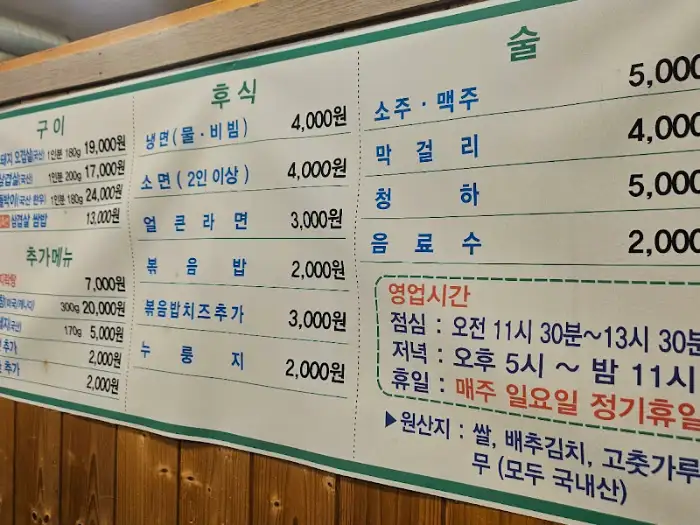 구이
돼지 오겹살(국산) 1인분 180g 19,000원
삼겹살(국산) 1인분 200g 17,000원
1인분 180g 24,000원
삼겹살 쌈밥 13,000원
추가메뉴
7,000원
300g 20,000원
170g 5,000원
추가 2,000원
추가 2,000원
후식
냉면(물·비빔) 4,000원
소면(2인 이상) 4,000원
얼큰라면 3,000원
볶음밥 2,000원
볶음밥치즈추가 3,000원
누룽지 2,000원
술
소주·맥주 5,000
막걸리 4,000
청하 5,000
음료수 2,000
영업시간
점심 : 오전 11시 30분~13시 30분
저녁 : 오후 5시 ~ 밤 11시
휴일 : 매주 일요일 정기휴일
▶원산지 : 쌀, 배추김치, 고춧가루
무 (모두 국내산)